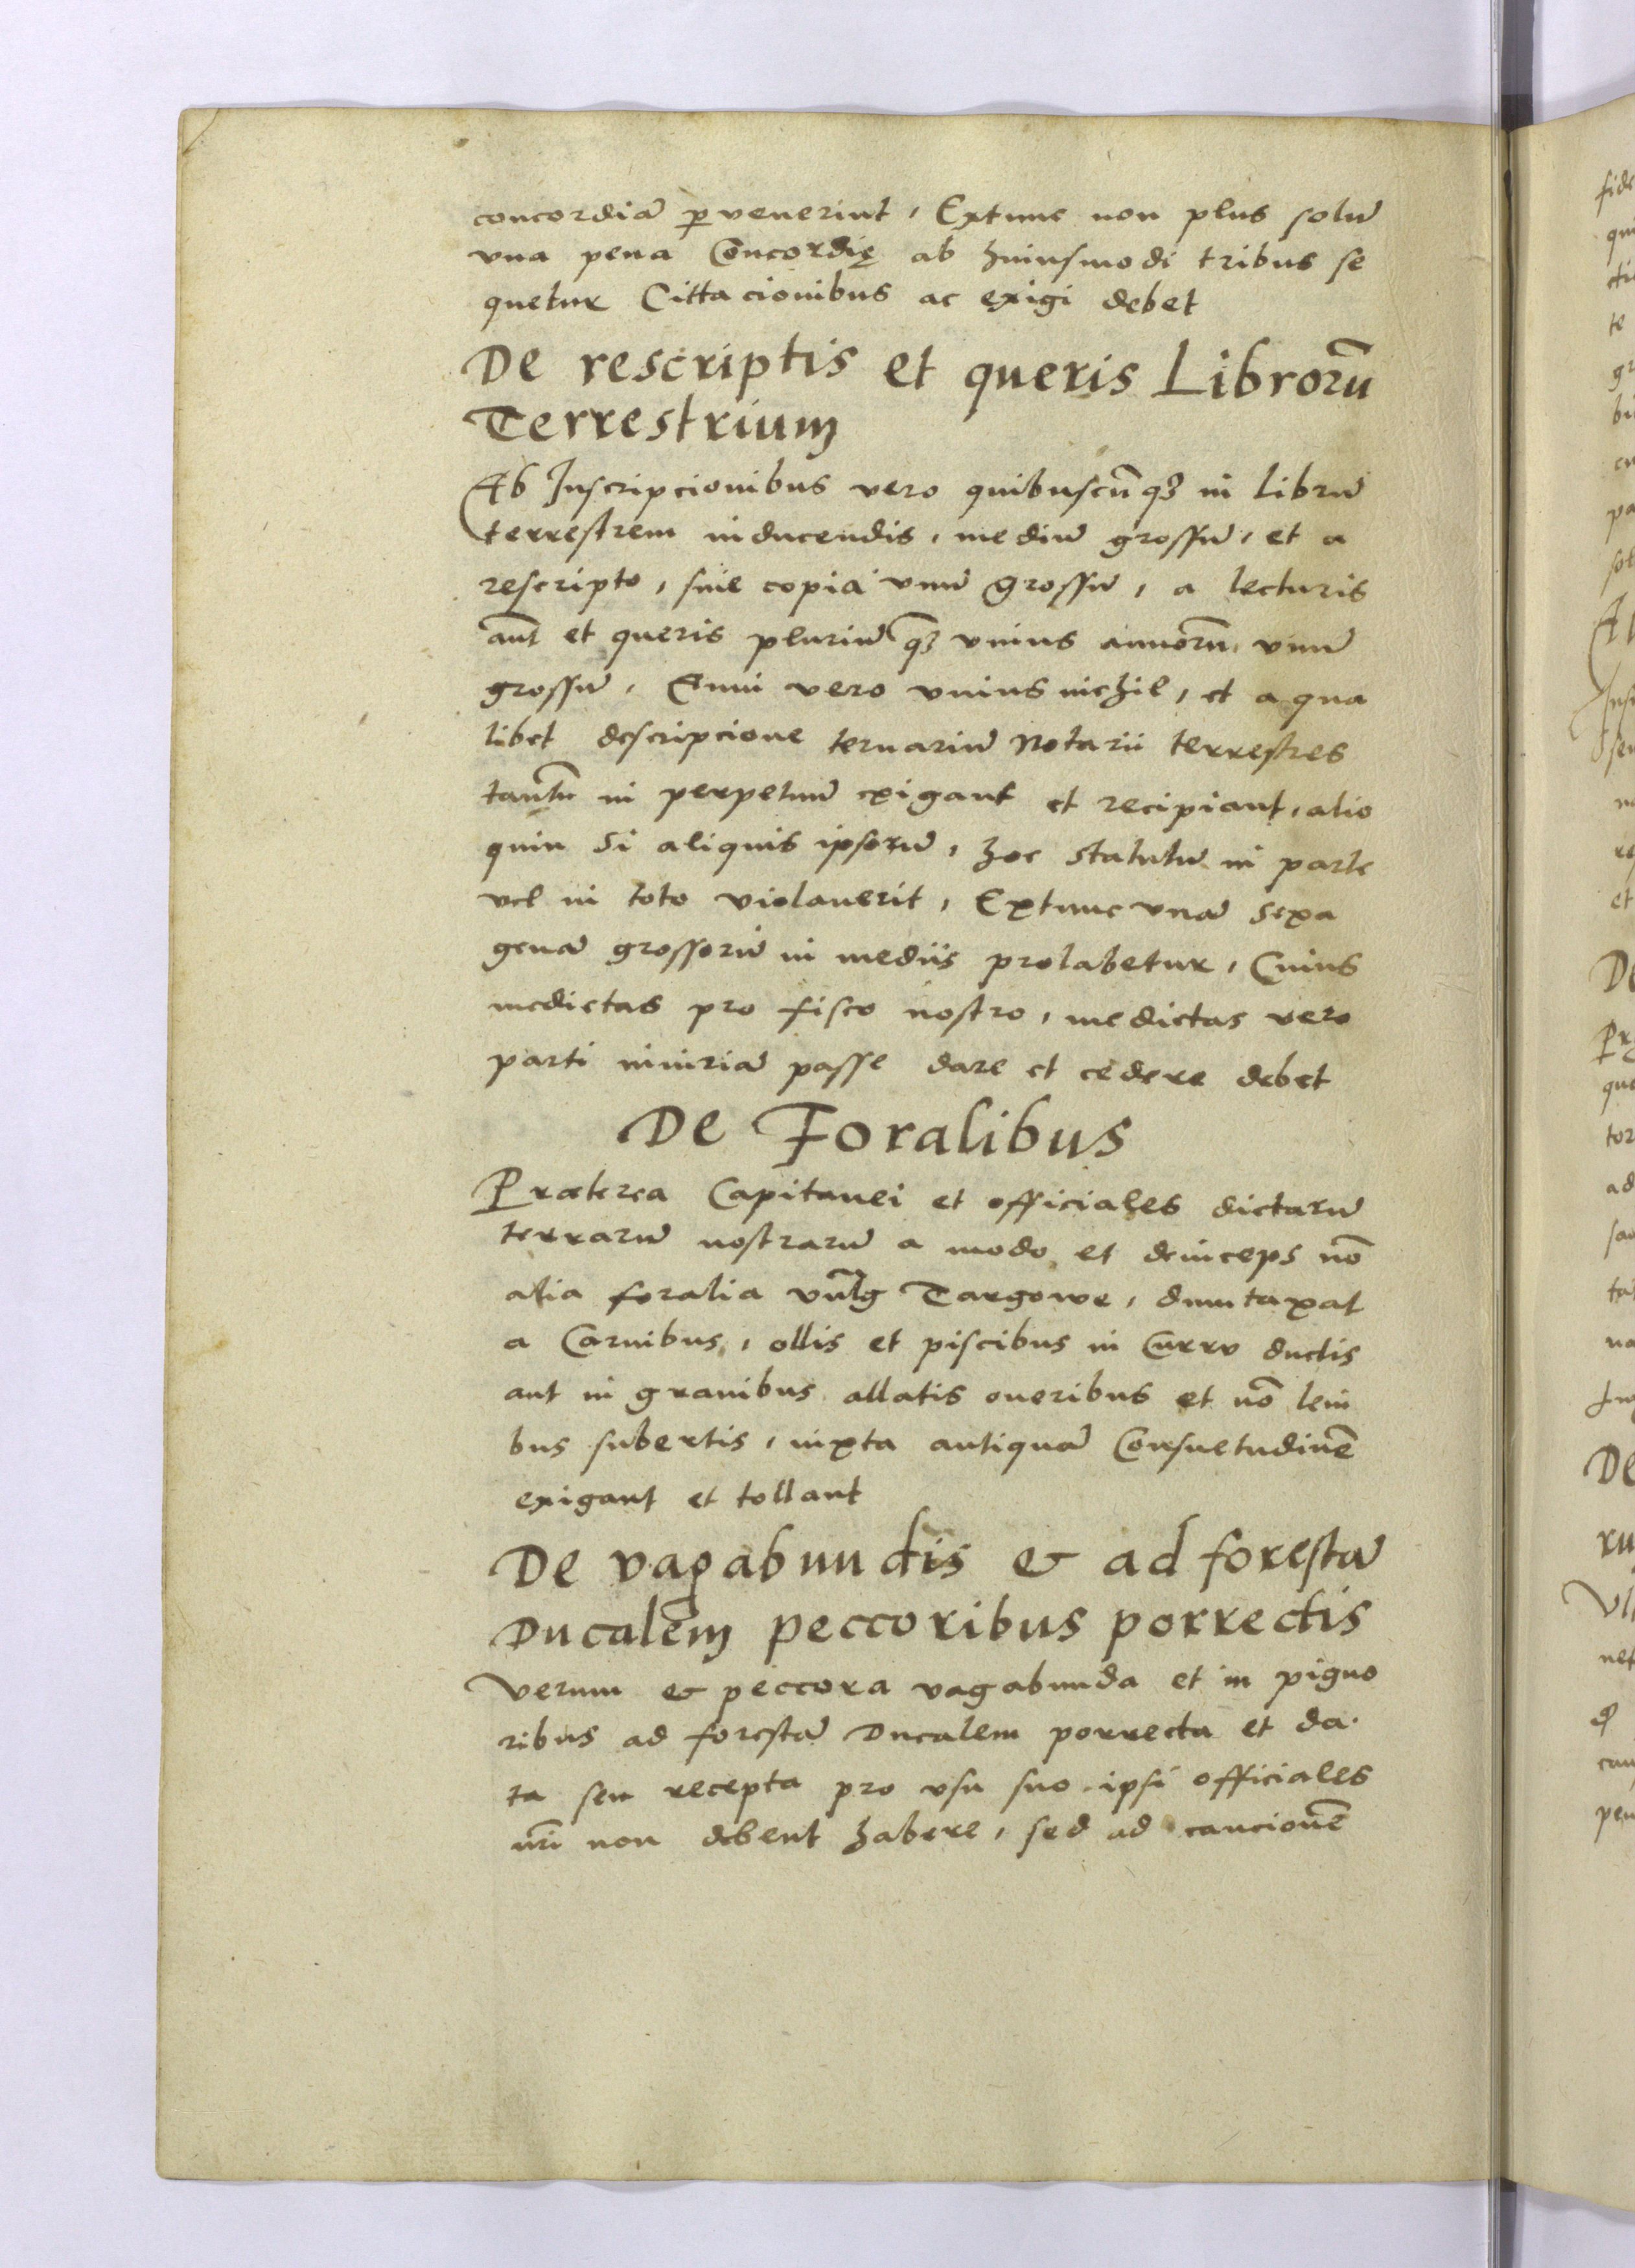 concordiā ꝑvenerint, Extunc non plus solū
vna pena Concordię ab huiusmodi tribus se
quetur Cittacionibus ac exigi debet
De rescriptis et queris Librorū
Terrestrium
Ab Inscripcionibus vero quibuscūqꝫ in librū
terrestrem inducendis, mediū grossū, et a
rescripto, siue copia vnū grossū, a lecturis
aut̄ et queris pluriū qꝫ vnius annorū, vnū
grossū, Anni vero vnius nichil, et a qua
libet descripcione ternariū Notarii terrestres
tantū in perpetuū exigant et recipiant, alio
quin Si aliquis ipsorū, hoc statutū in parte
vel in toto violauerit, Extunc vnā sexa
genā grossorū in mediis prolabetur, Cuius
medietas pro fisco nostro, medietas vero
parti iniuriā passe dare et cedere debet
De Foralibus
Præterea Capitanei et officiales dictarū
terrarū nostrarū a modo et deinceps nō
alia foralia vulḡ Targowe, dumtaxat
a Carnibus, ollis et piscibus in Curru ductis
aut in grauibus allatis oneribus et nō leui
bus subertis, iuxta antiquā Consuetudinē
exigant et tollant
De vagabundis & ad forestā
Ducalem̄ peccoribus porrectis
Verum & peccora vagabunda et in pigno
ribus ad forestā Ducalem porrecta et da.
ta seu recepta pro vsu suo ipsi officiales
nr̄i non debent habere, sed ad caucionē